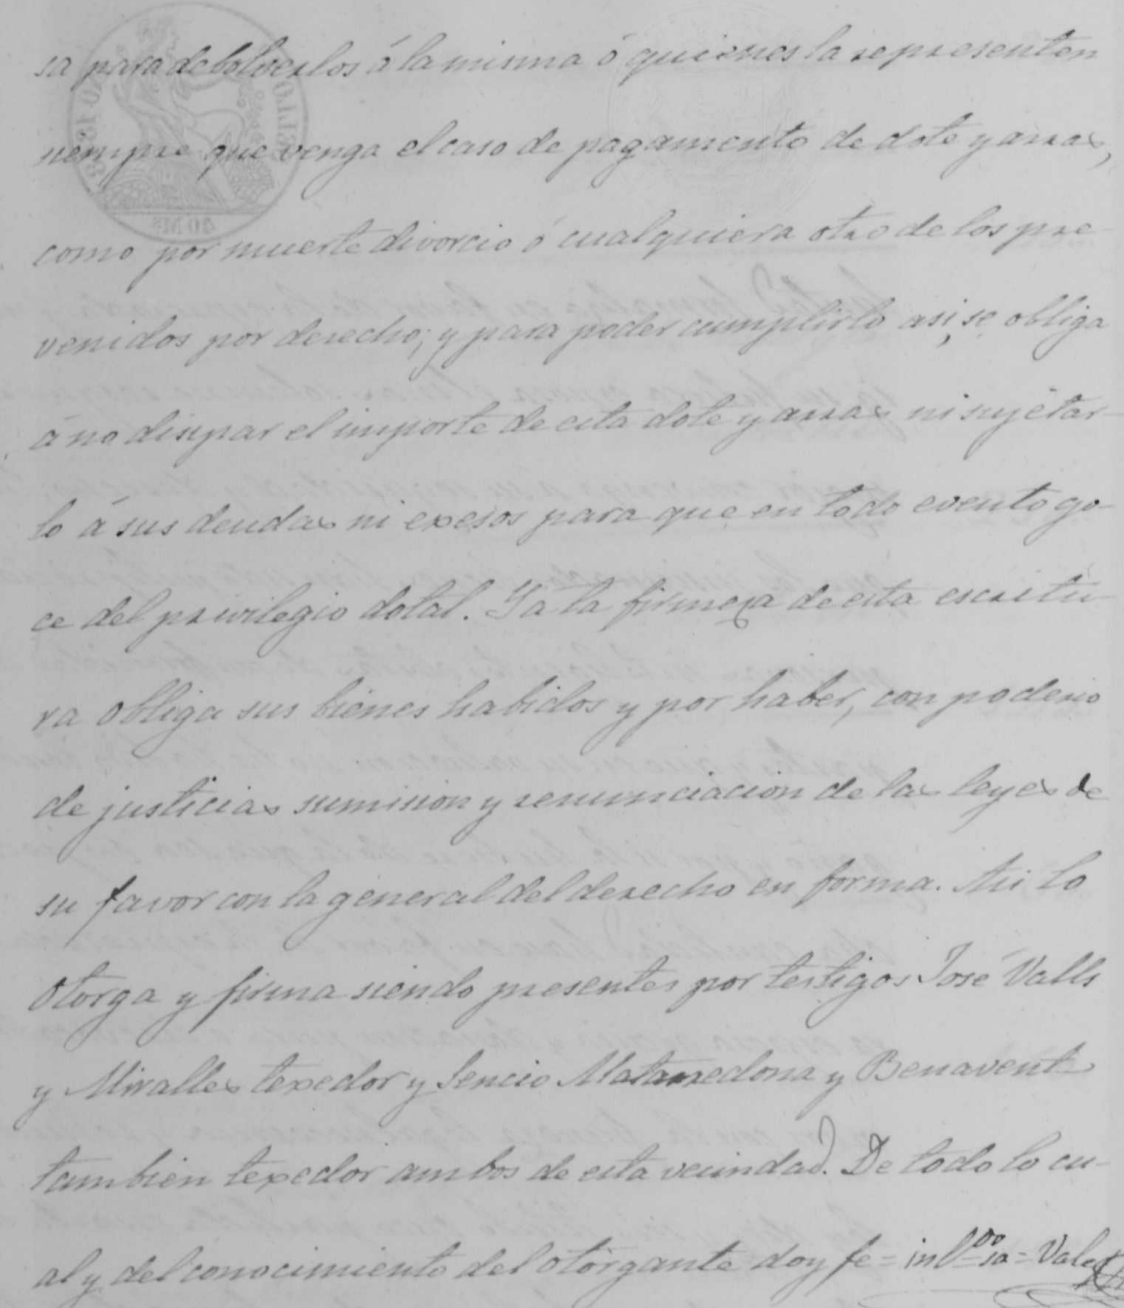 sa para debolverlos á la misma ó quienes la representen
siempre que venga el caso de pagamento de dote y arras,
como por muerte divorcio ó cualquiera otro de los pre-
venidos por derecho; y para poder cumplirlo asi, se obliga
á no disipar el importe de esta dote y arras ni sujetar-
lo á sus deudas ni exesos para que en todo evento go-
ce del privilegio dotal. Y a la firmeza de esta escritu-
ra obliga sus bienes habidos y por haber, con poderio
de justicias sumision y renunciacion de las leyes de
su favor con la general del derecho en forma. Asi lo
otorga y firma siendo presentes por testigos José Valls
y Miralles texedor y Sencio Mataredona y Benavent
tambien texedor ambos de esta vecindad. De todo lo cu-
al y del conocimiento del otorgante doy fe = Vale
40 Ms